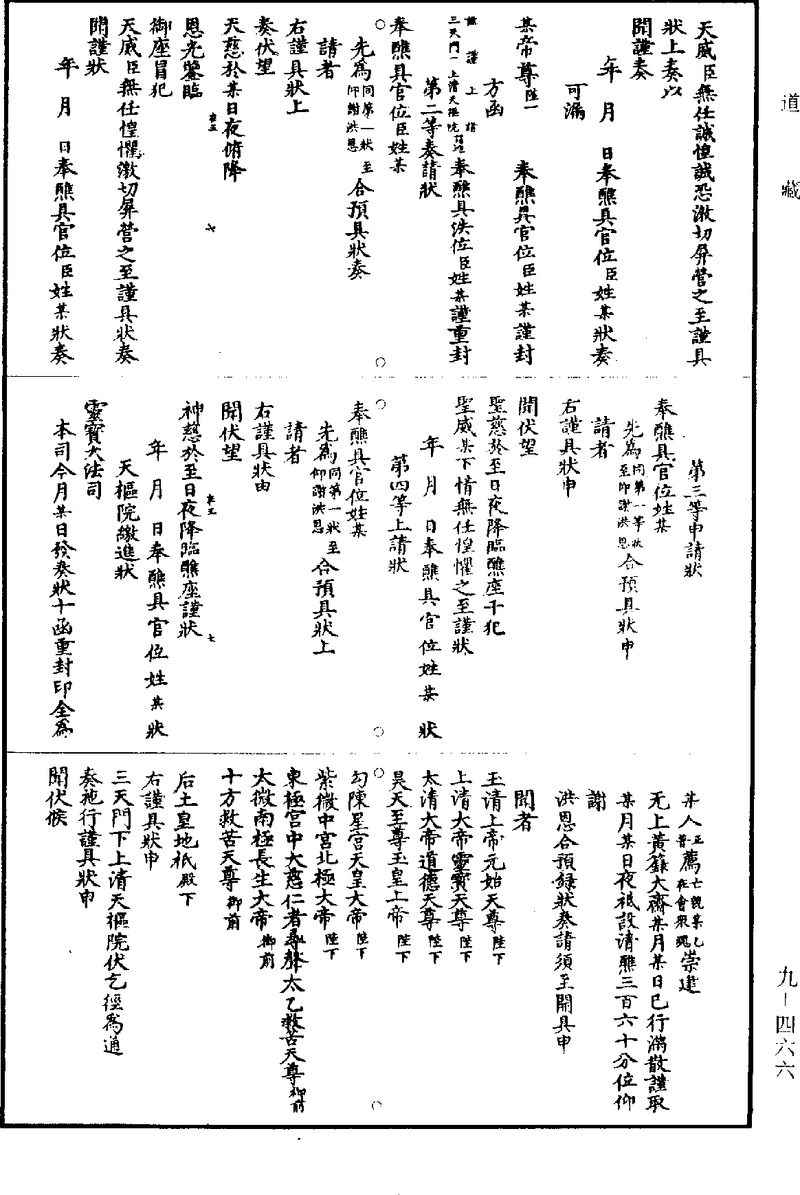 道藏
天威臣無任誠惶誠恐激切屏營之至謹具
狀上奏以
聞謹奏
年　月　日奉醮具官位臣姓某狀奏
可漏
某帝尊陛一　奉醮具官位臣姓某謹封
方函
謹謹上請
三天門下上清天樞院　奉醮具法位臣姓某謹重封
第二等奏請狀
奉醮具官位臣姓某
先為同第一狀至仰謝洪恩合預具狀奏
請者
右謹具狀上
奏伏望
天慈於某日夜俯降
恩光鑒臨
御座冒犯
天威臣無任惶懼激切屏營之至謹具狀奏
聞謹狀
年　月　日奉醮具官位臣姓某狀奏
第三等申請狀
奉醮具官位姓某
先為同第一等狀至仰謝洪恩合預具狀申
請者
右謹具狀申
聞伏望
聖慈於至日夜降臨醮座干犯
聖威某下情無任惶懼之至謹狀
年　月　日奉醮具官位姓某　狀
第四等上請狀
奉醮具官位姓某
先為同第一狀至仰謝洪恩合預具狀上
請者
右謹具狀由
聞伏望
神慈於至日夜降臨醮座謹狀
年　月　日奉醮具官位姓某狀
天樞院繳進狀
靈寶大法司
本司今月某日發奏狀十函重封印全為
某人正薦亡魂某乙普在會眾魂崇建
无上黃籙大齋某月某日已行滿散謹取
某月某日夜祇設清醮三百六十分位仰
謝
洪恩合預錄狀奏請須至開具申
聞者
玉清上帝元始天尊陛下
上清大帝靈寶天尊陛下
太清大帝道德天尊陛下
昊天至尊玉皇上帝陛下
勾陳星宮天皇大帝陛下
紫微中宮北極大帝陛下
東極宮中大慈仁者尋聲太乙救苦天尊御前
太微南極長生大帝御前
十方救苦天尊御前
后土皇地祇殿下
右謹具狀申
三天門下上清天樞院伏乞徑為通
奏施行謹具狀申
聞伏候
九—四六六